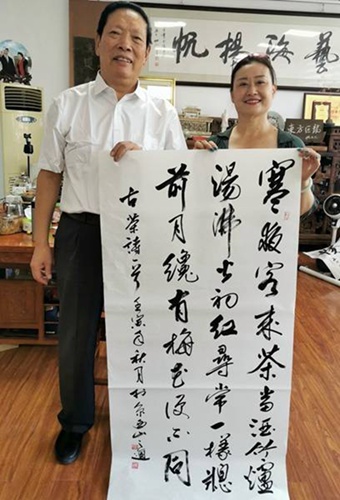 藝海揚帆
寒夜客来茶当酒竹爐
湯沸火初红尋常一樣窗
前月纔有梅花便不同
古茶诗一首 壬寅年秋月